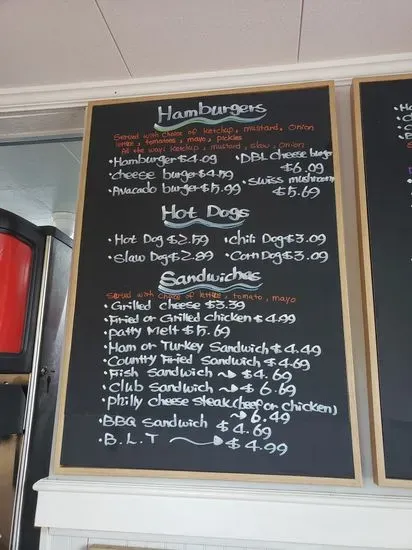 Hamburgers
Served with choice of ketchup, mustard, onion
lettuce, tomatoes, mayo, pickles
All the way: ketchup, mustard, slaw, onion
• Hamburger $4.09 • DBL cheese burger
$6.09
• cheese burger $4.59 • Swiss mushroom
• Avacado burger $5.99 $5.69
Hot Dogs
• Hot Dog $2.59 • chili Dog $3.09
• Slaw Dog $2.99 • Corn Dog $3.09
Sandwiches
Served with choice of lettuce, tomato, mayo
• Grilled cheese $3.39
• Fried or Grilled chicken $4.99
• patty Melt $5.69
• Ham or Turkey Sandwich $4.49
• Country Fried Sandwich $4.69
• Fish Sandwich → $4.69
• Club Sandwich → $6.69
• philly cheese steak (beef or chicken)
→ 6.49
• BBQ Sandwich $4.69
• B.L.T → $4.99